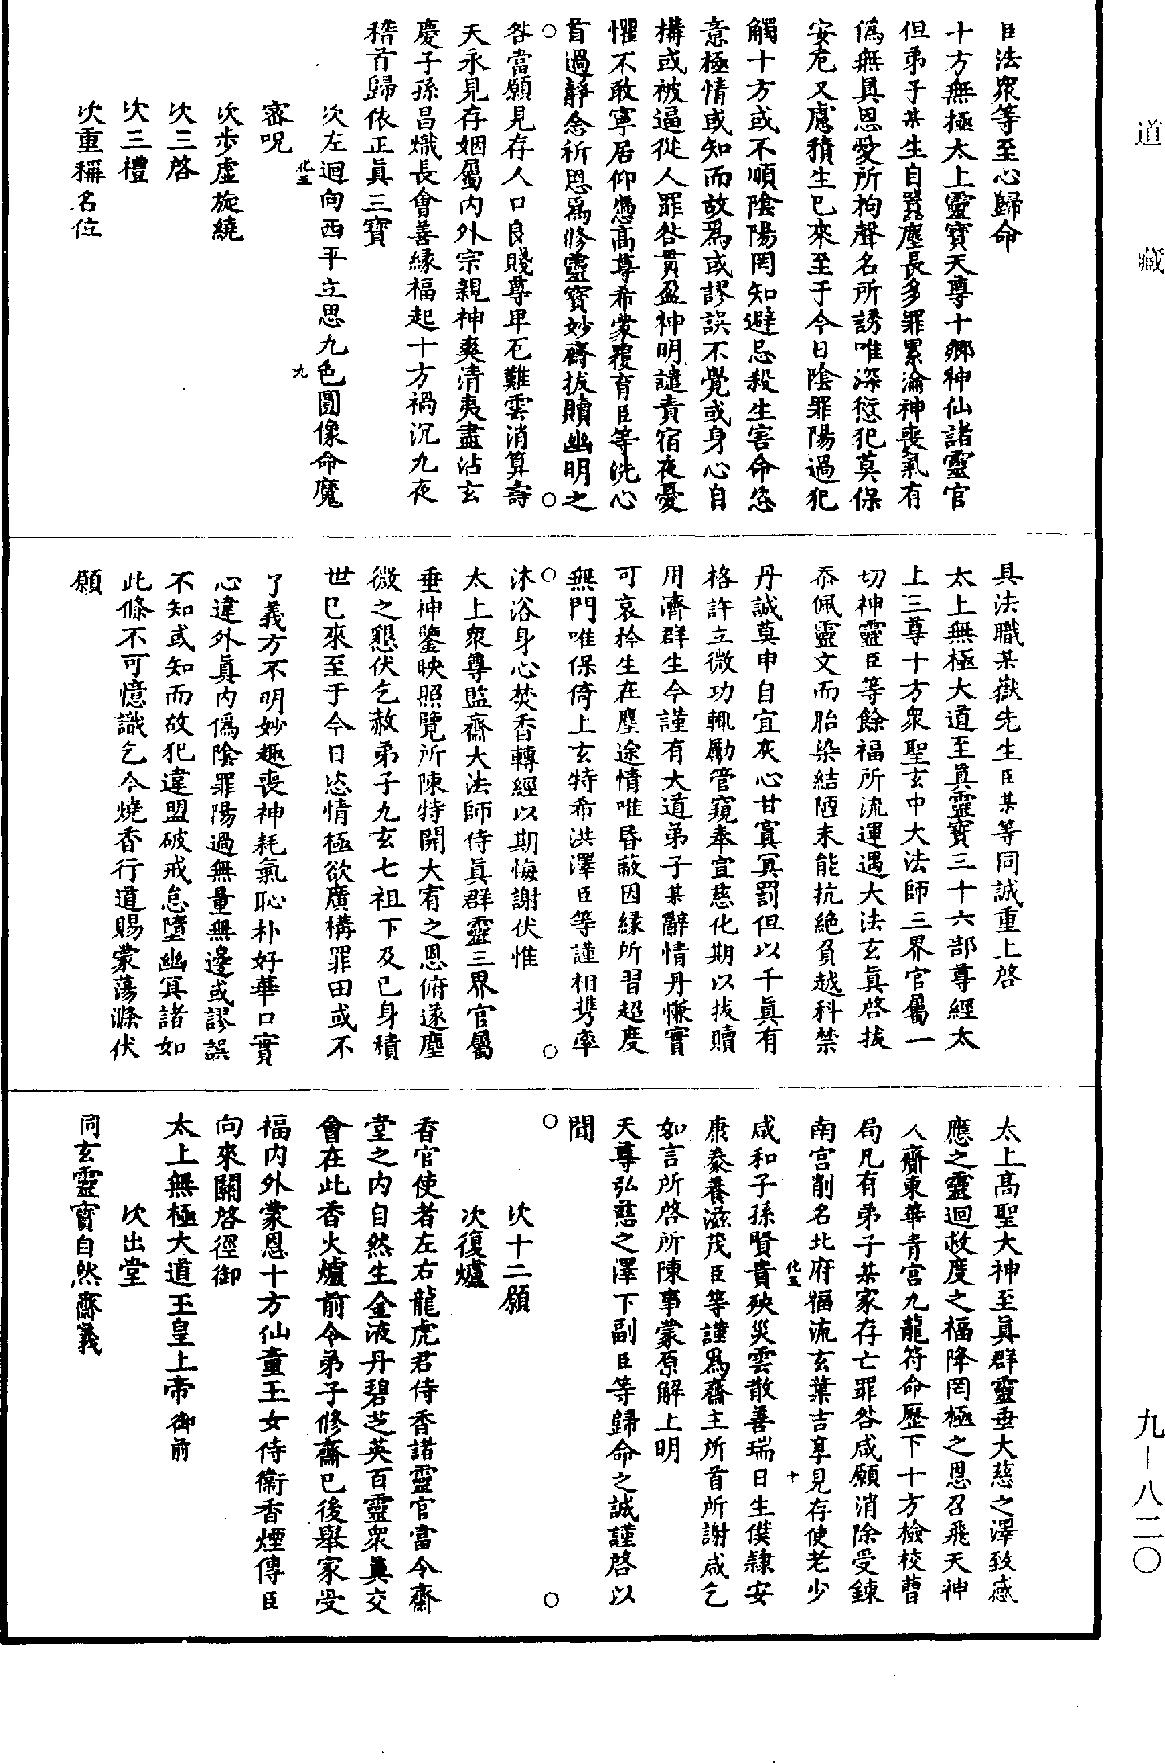 道藏
臣法衆等至心歸命
十方無極太上靈寶天尊十鄉神仙諸靈官
但弟子某生自囂塵長多罪累淪神喪氣有
僞無真恩愛所拘聲名所誘唯深愆犯莫保
安危又慮積生已來至于今日陰罪陽過犯
觸十方或不順陰陽罔知避忌殺生害命恣
意極情或知而故爲或謬誤不覺或身心自
構或被逼從人罪咎貫盈神明譴責宿夜憂
懼不敢寧居仰憑高尊希蒙覆育臣等洗心
首過靜念祈恩爲修靈寶妙齋拔贖幽明之
咎當願見存人口良賤尊卑厄難雲消算壽
天永見存姻屬内外宗親神爽清夷盡沾玄
慶子孫昌熾長會善緣福起十方禍沉九夜
稽首歸依正真三寶
次左迴向西平立思九色圓像命魔
密呪
次步虛旋繞
次三啓
次三禮
次重稱名位
化五
九
具法職某嶽先生臣某等同誠重上啓
太上無極大道至真靈寶三十六部尊經太
上三尊十方衆聖玄中大法師三界官屬一
切神靈臣等餘福所流運遇大法玄真啓拔
忝佩靈文而胎染結陋未能抗絶負越科禁
丹誠莫申自宜灰心甘寘冥罰但以千真有
格許立微功輒勵管窺奉宣慈化期以拔贖
用濟群生今謹有大道弟子某辭情丹慊實
可哀矜生在塵途情唯昏蔽因緣所習超度
無門唯保倚上玄特希洪澤臣等謹相携率
沐浴身心焚香轉經以期悔謝伏惟
太上衆尊監齋大法師侍真群靈三界官屬
垂神鑒映照覽所陳特開大宥之恩俯遂塵
微之懇伏乞赦弟子九玄七祖下及己身積
世已來至于今日恣情極欲廣構罪田或不
了義方不明妙趣喪神耗氣恥朴好華口實
心違外真内僞陰罪陽過無量無邊或謬誤
不知或知而故犯違盟破戒怠墮幽冥諸如
此條不可憶識乞今燒香行道賜蒙蕩滌伏
願
太上高聖大神至真群靈垂大慈之澤致感
應之靈迴救度之福降罔極之恩召飛天神
人齎東華青宮九龍符命歷下十方檢校曹
局凡有弟子某家存亡罪咎咸願消除受鍊
南宮削名北府福流玄葉吉享見存使老少
咸和子孫賢貴殃災雲散善瑞日生僕隸安
康豢養滋茂臣等謹爲齋主所首所謝咸乞
如言所啓所陳事蒙原解上明
天尊弘慈之澤下副臣等歸命之誠謹啓以
聞
次十二願
次復爐
香官使者左右龍虎君侍香諸靈官當令齋
堂之内自然生金液丹碧芝英百靈衆真交
會在此香火爐前令弟子修齋已後舉家受
福内外蒙恩十方仙童玉女侍衛香煙傳臣
向來關啓徑御
太上無極大道玉皇上帝御前
次出堂
同玄靈寶自然齋儀
化五
十
九—八二〇